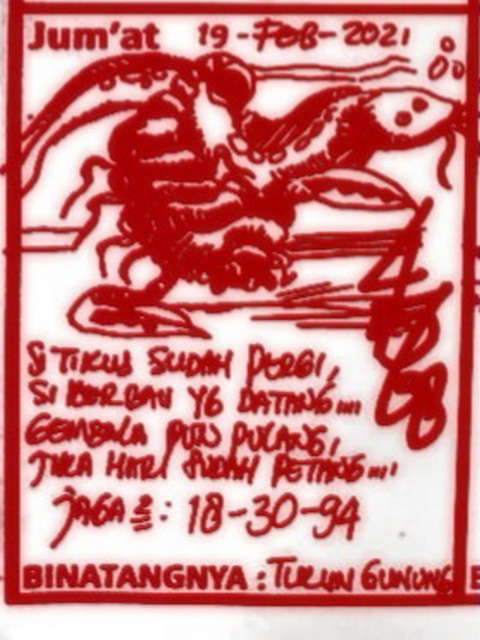 Jum'at 19-FEB-2021
SI TIKUS SUDAH PERGI,
SI KORBAN YG DATANG....
GEMBALA PUN PULANG,
JIKA HARI SUDAH PETANG....
JAGA²: 18-30-94
BINATANGNYA : TURUN GUNUNG